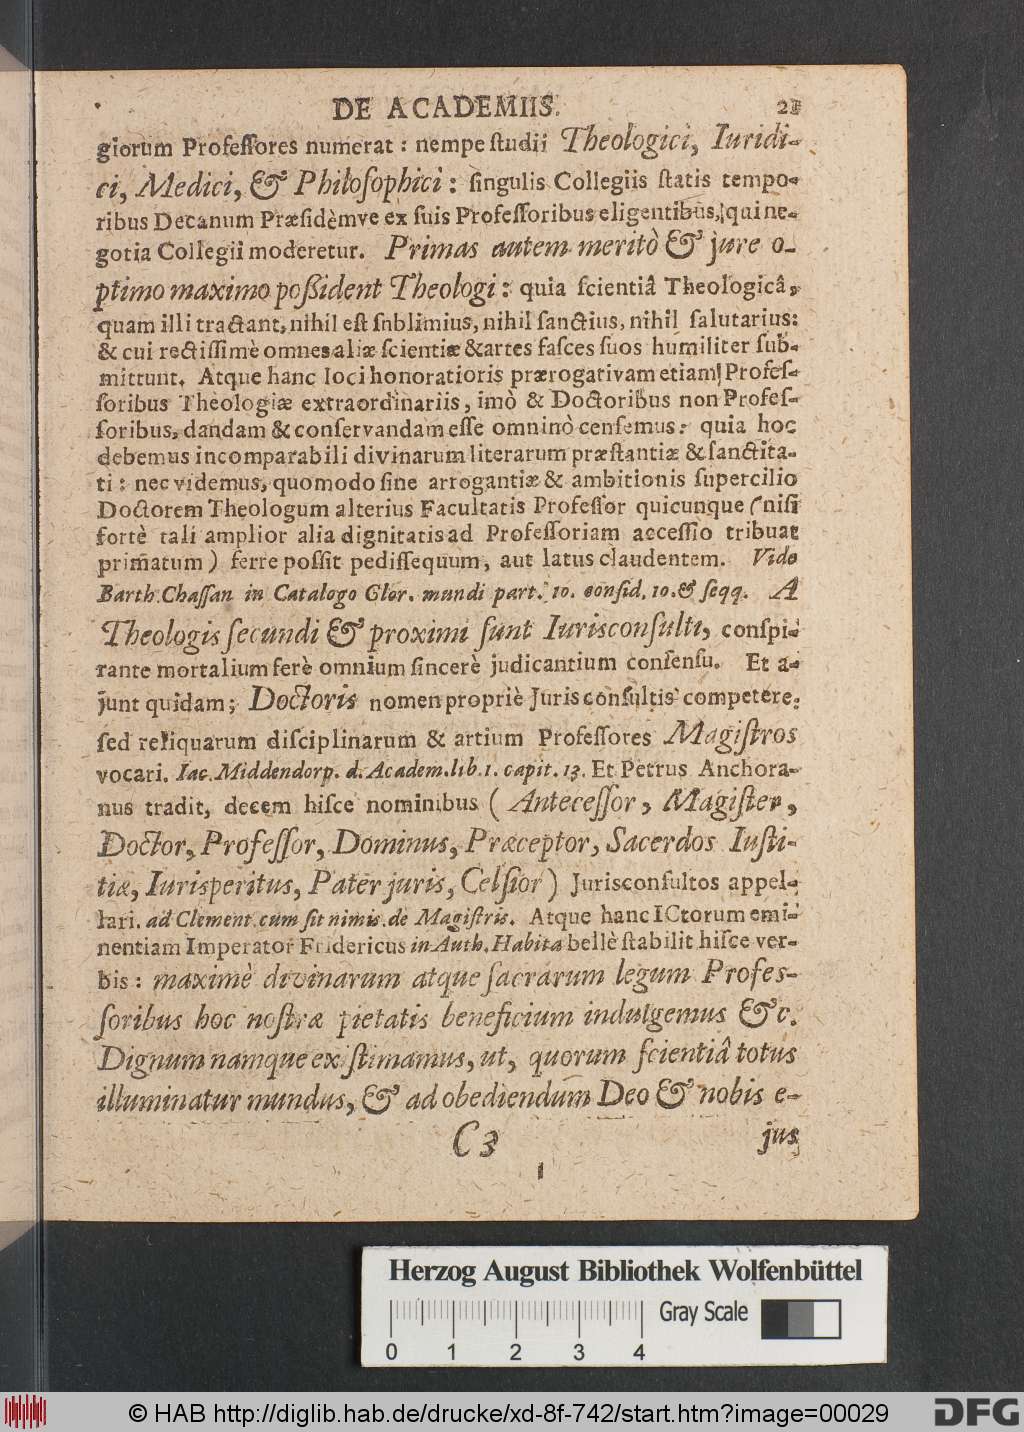 DE ACADEMIIS. 21
giorum Profeſſores numerat: nempe ſtudii Theologici, Iuridi-
ci, Medici, & Philoſophici: ſingulis Collegiis ſtatis tempo-
ribus Decanum Præſidèmve ex ſuis Profeſſoribus eligentibus, qui ne-
gotia Collegii moderetur. Primas autem meritò & jure o-
ptimo maximo poßident Theologi: quia ſcientiâ Theologicâ,
quam illi tractant, nihil eſt ſublimius, nihil ſanctius, nihil ſalutarius:
& cui rectiſſimè omnes aliæ ſcientiæ & artes faſces ſuos humiliter ſub-
mittunt. Atque hanc loci honoratioris prærogativam etiam Profeſ-
ſoribus Theologiæ extraordinariis, imò & Doctoribus non Profeſ-
ſoribus, dandam & conſervandam eſſe omninò cenſemus: quia hoc
debemus incomparabili divinarum literarum præſtantiæ & ſanctita-
ti: nec videmus, quomodo ſine arrogantiæ & ambitionis ſupercilio
Doctorem Theologum alterius Facultatis Profeſſor quicunque (niſi
fortè tali amplior alia dignitatis ad Profeſſoriam acceſſio tribuat
primatum) ferre poſſit pediſſequum, aut latus claudentem. Vide
Barth. Chaſſan in Catalogo Glor. mundi part. 10. conſid. 10. & ſeqq. A
Theologis ſecundi & proximi ſunt Iurisconſulti, conſpi-
rante mortalium ferè omnium ſincerè judicantium conſenſu. Et a-
junt quidam; Doctoris nomen propriè Jurisconſultis competere:
ſed reliquarum diſciplinarum & artium Profeſſores Magiſtros
vocari. Iac. Middendorp. d. Academ. lib. 1. capit. 13. Et Petrus Anchora-
nus tradit, decem hiſce nominibus (Anteceſſor, Magiſter,
Doctor, Profeſſor, Dominus, Præceptor, Sacerdos Iuſti-
tiæ, Iurisperitus, Pater juris, Celſior) Jurisconſultos appel-
lari. ad Clement. cum ſit nimis. de Magiſtris. Atque hanc ICtorum emi-
nentiam Imperator Fridericus in Auth. Habita bellè ſtabilit hiſce ver-
bis: maximè divinarum atque ſacrarum legum Profeſ-
ſoribus hoc noſtræ pietatis beneficium indulgemus &c.
Dignum namque exiſtimamus, ut, quorum ſcientiâ totus
illuminatur mundus, & ad obediendum Deo & nobis e-
C 3 jus
Herzog August Bibliothek Wolfenbüttel
Gray Scale
0 1 2 3 4
© HAB http://diglib.hab.de/drucke/xd-8f-742/start.htm?image=00029
DFG